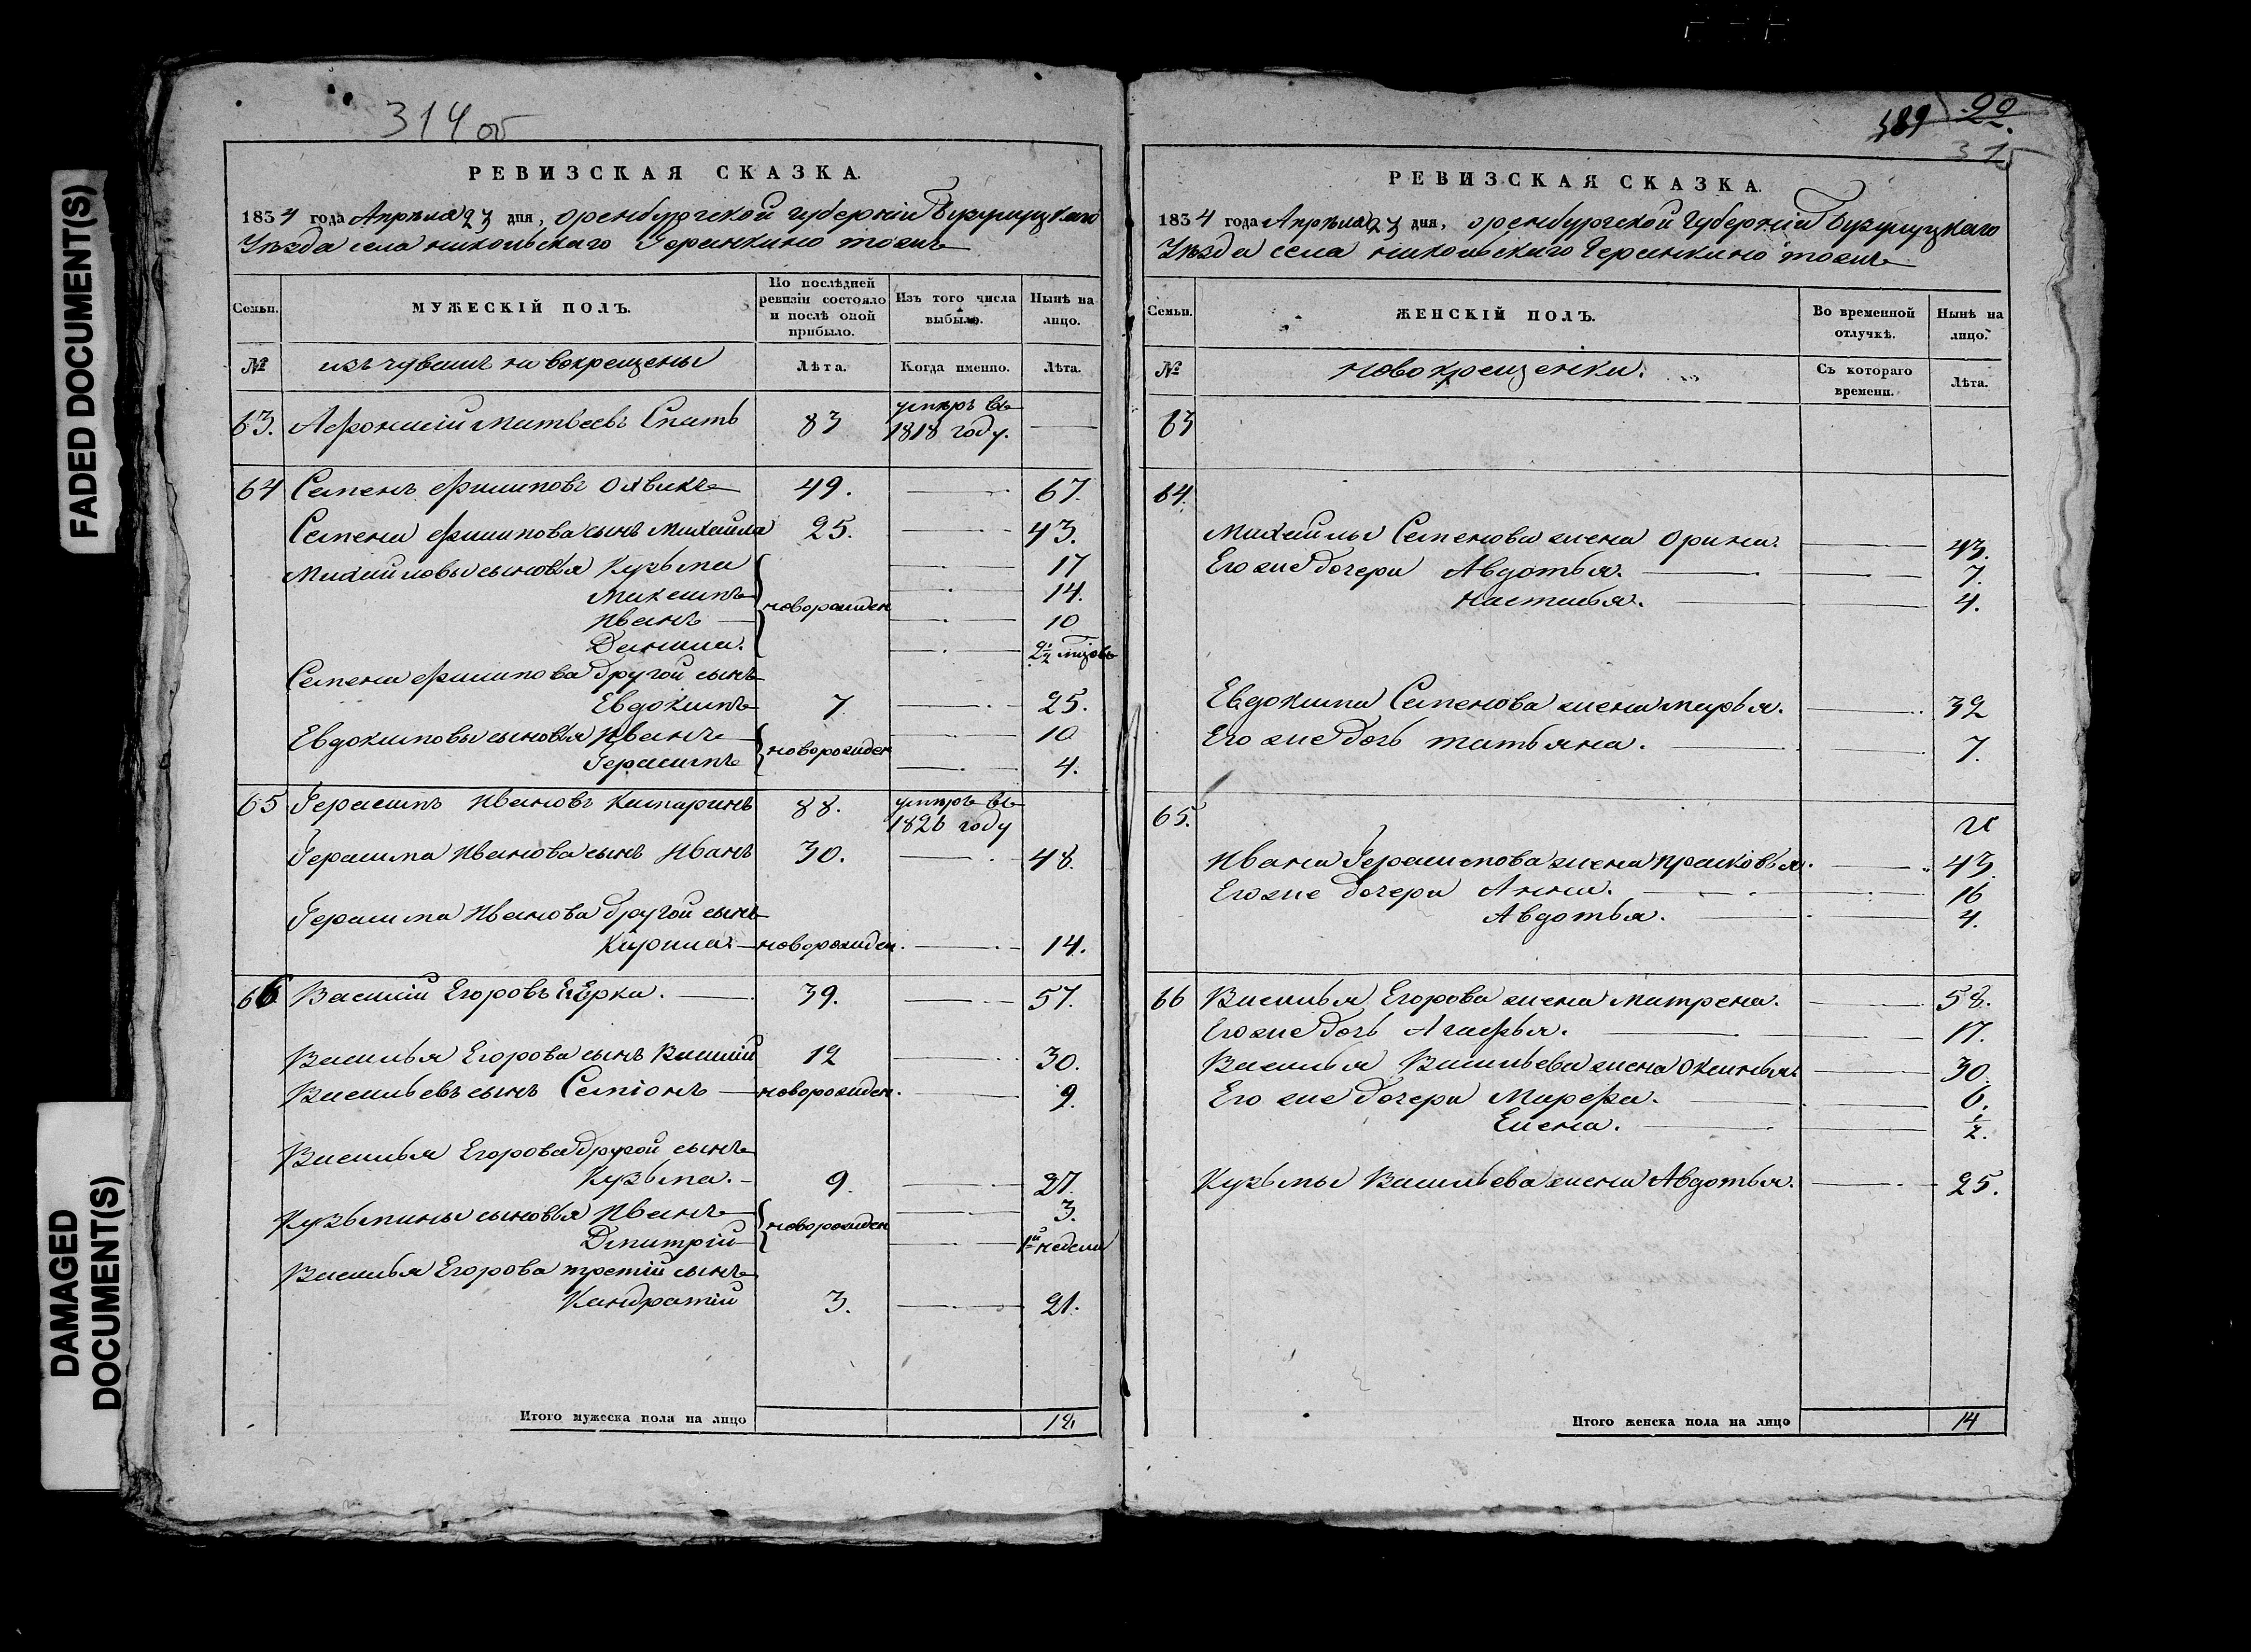 FADED DOCUMENT(S)
DAMAGED
DOCUMENT(S)
314 об
РЕВИЗСКАЯ СКАЗКА.
1834 года Апрѣля 23 дня, оренбургской губерніи Бузулуцкаго
Уѣзда села никольскаго тожъ
Семьи.
МУЖЕСКІЙ ПОЛЪ.
По послѣдней
ревизіи состояло
и послѣ оной
прибыло.
Изъ того числа
выбыло.
Нынѣ на
лицо.
№
изъ чувашъ новокрещены
Лѣта.
Когда именно.
Лѣта.
63. Афонасій Матвеевъ 83 умиръ въ
1818 году.
64 Семенъ Филиповъ 49. 67.
Семена Филипова сынъ Михайла 25. 43.
Михайловы сыновья Кузьма 17
Максимъ новорожден 14.
Иванъ 10
Данила.
Семена Филипова другой сынъ
Евдокимъ 7 25.
Евдокимовы сыновья Иванъ новорожден 10
Герасимъ 4.
65 Герасимъ Ивановъ 88. умиръ въ
1826 году
Герасима Иванова сынъ Иванъ 30. 48.
Герасима Иванова другой сынъ
Кирила новорожден. 14.
66 Василій Егоровъ 39. 57.
Василья Егорова сынъ Василій 12 30.
Васильевъ сынъ Семіонъ новорожден. 9.
Василья Егорова другой сынъ
Кузьма. 9. 27.
Кузьмины сыновья Иванъ новорожден 3.
Дмитрій 1й недели
Василья Егорова третій сынъ
Кандратій 3. 21.
Итого мужеска пола на лицо
489 90
315
РЕВИЗСКАЯ СКАЗКА.
1834 года Апрѣля 23 дня, оренбургской Губерніи Бузулуцкаго
Уѣзда села никольскаго тожъ
Семьи.
ЖЕНСКІЙ ПОЛЪ.
Во временной
отлучкѣ.
Нынѣ на
лицо.
№
новокрещенки.
Съ котораго
времени.
Лѣта.
63
64.
Михайлы Семенова жена Орина. 43.
Его же дочери Авдотья. 7.
настасья. 4.
Евдокима Семенова жена марья. 32
Его же дочь татьяна. 7.
65.
Ивана Герасимова жена прасковья. 43.
Его же дочери Анна. 16
Авдотья. 4.
66 Василья Егорова жена матрена. 58.
Его же дочь Агафья. 17.
Василья Васильева жена Оксинья. 30.
Его же дочери Марфа. 6.
Елена. 1/2.
Кузьмы Васильева жена Авдотья. 25.
Итого женска пола на лицо 14